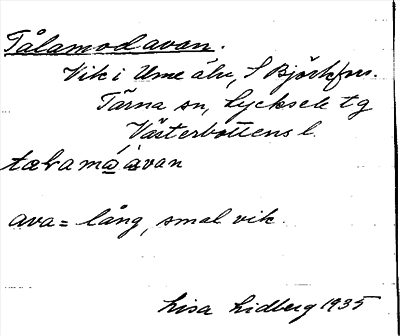 Tålamodavan.
Vik i Ume älv, S Björkfors.
Tärna sn, Lycksele tg
Västerbottens l.
ava = lång, smal vik.
Lisa Lidberg 1935